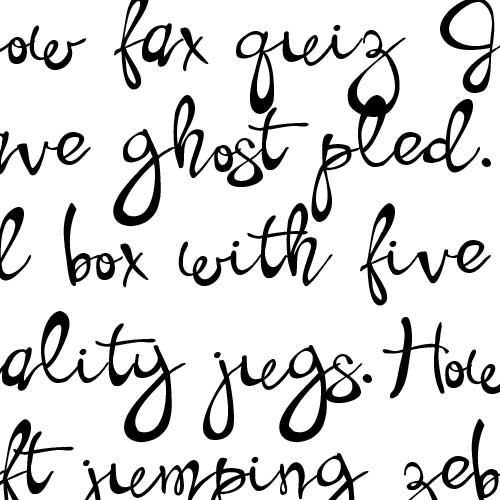 ow fax quiz J
ve ghost pled.
l box with five
ality jugs. How
ft jumping zeb